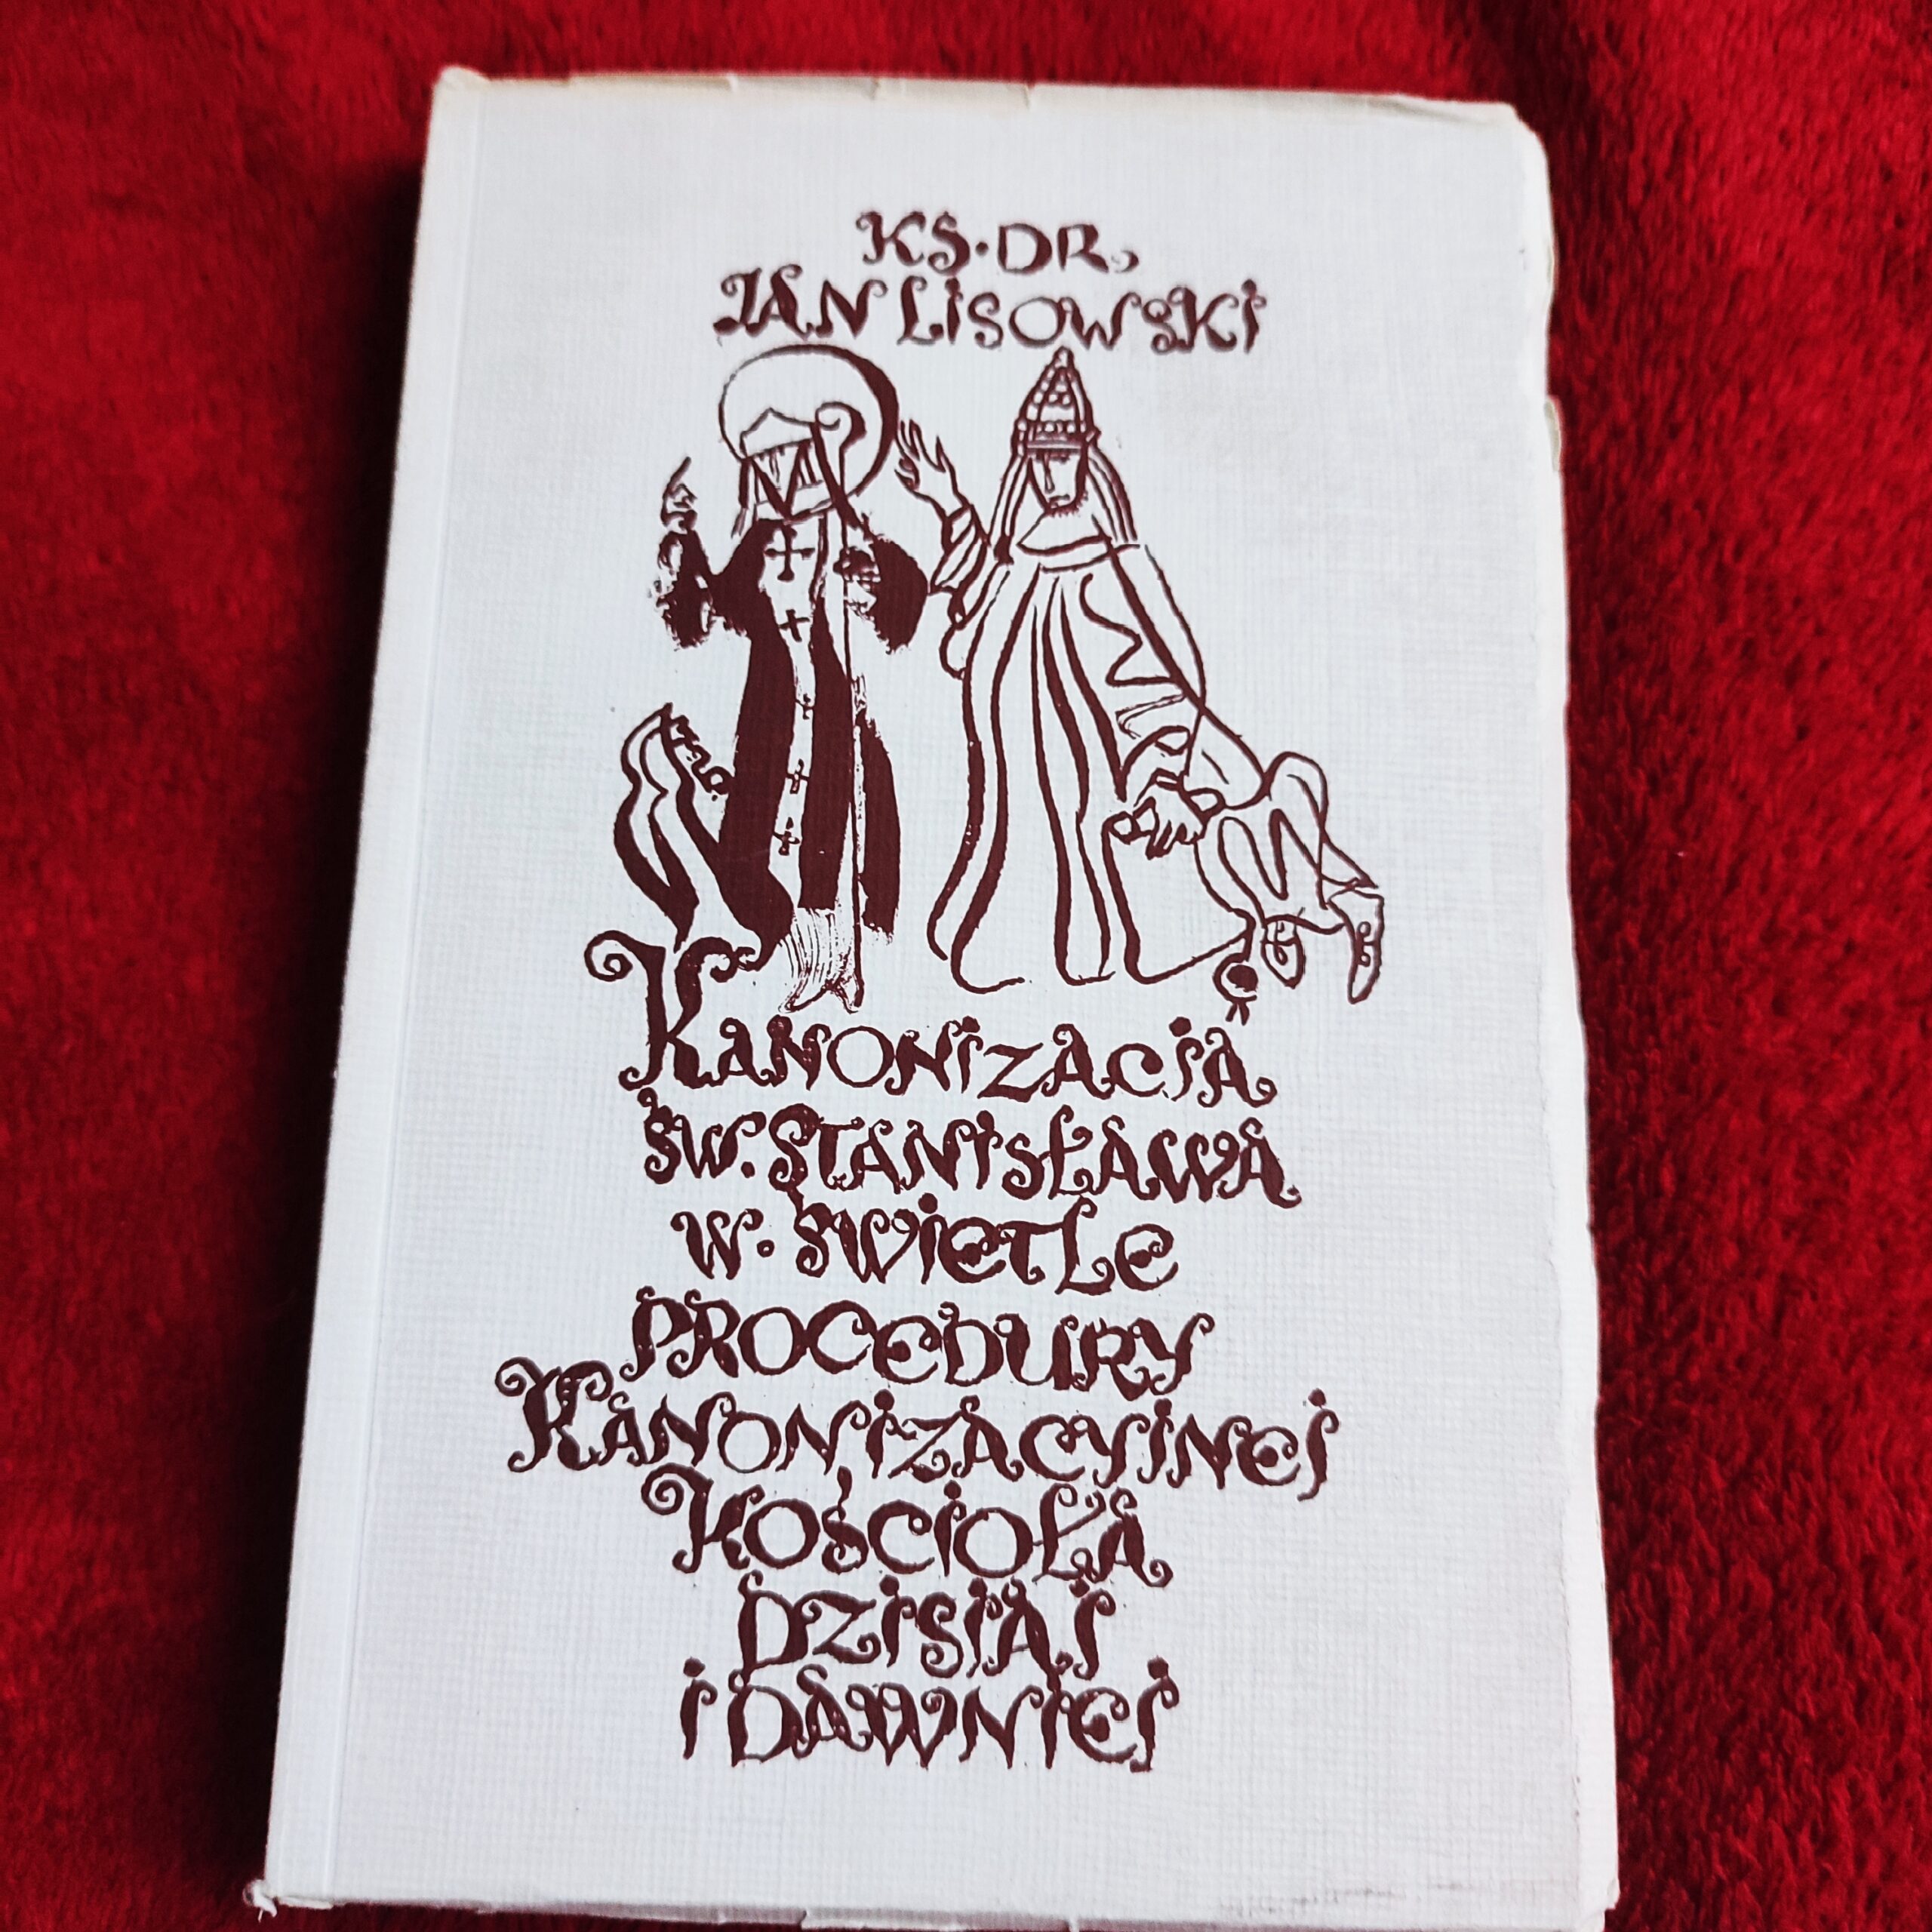 KS. DR.
JAN LISOWSKI
KANONIZACJA
ŚW. STANISŁAWA
W. ŚWIETLE
PROCEDURY
KANONIZACYJNEJ
KOŚCIOŁA
DZISIAJ
I DAWNIEJ